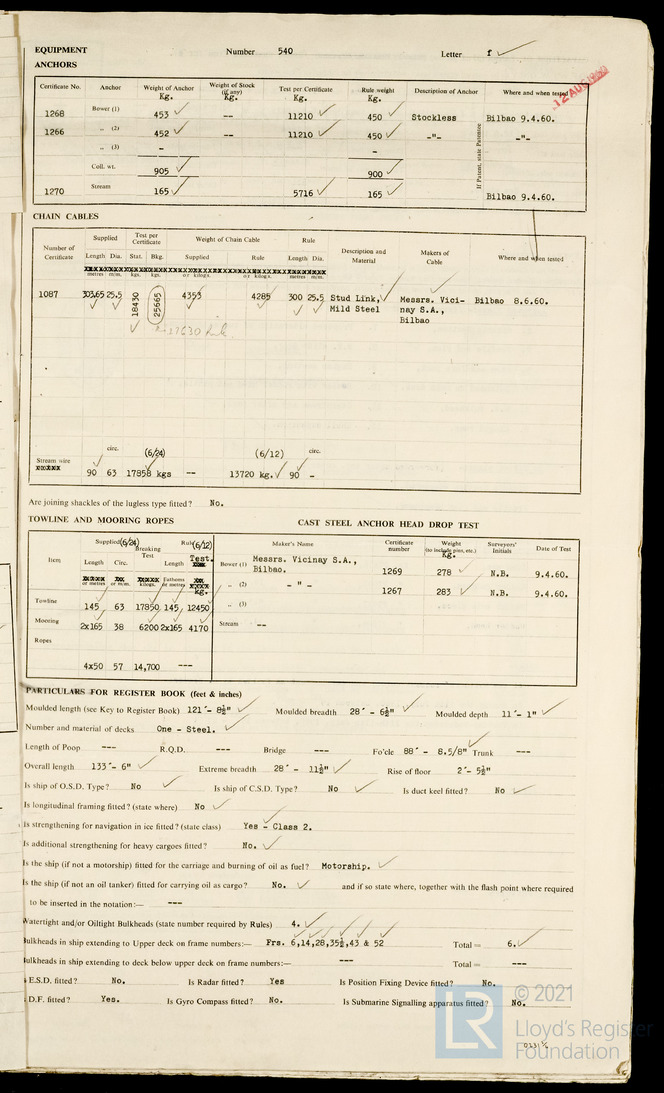 EQUIPMENT Number 540 Letter f
ANCHORS
Certificate No. Anchor Weight of Anchor Kg. Weight of Stock (if any) Kg. Test per Certificate Kg. Rule weight Kg. Description of Anchor Where and when tested
12 AUG 1960
1268 Bower (1) 453 -- 11210 450 Stockless Bilbao 9.4.60.
1266 „ (2) 452 -- 11210 450 -"- -"-
„ (3) - -
If Patent, state Patentee
Coll. wt. 905 900
1270 Stream 165 5716 165 Bilbao 9.4.60.
CHAIN CABLES
Number of Certificate Supplied Test per Certificate Weight of Chain Cable Rule Description and Material Makers of Cable Where and when tested
Length Dia. Stat. Bkg. Supplied Rule Length Dia.
metres m/m. kgs. kgs. or kilogs. or kilogs. metres m/m.
1087 303.65 25.5 18430 25665 4353 4285 300 25.5 Stud Link, Mild Steel Messrs. Vicinay S.A., Bilbao Bilbao 8.6.60.
17630 Rule.
circ. (6/24) (6/12) circ.
Stream wire 90 63 17858 kgs -- 13720 kg. 90 -
Are joining shackles of the lugless type fitted? No.
TOWLINE AND MOORING ROPES CAST STEEL ANCHOR HEAD DROP TEST
Item Supplied (6/24) Rule (6/12) Maker's Name Certificate number Weight (to include pins, etc.) Kg. Surveyors' Initials Date of Test
Length Circ. Breaking Test Length Test.
or metres or m/m. kilogs. Fathoms or metres kg.
Bower (1) Messrs. Vicinay S.A., Bilbao. 1269 278 N.B. 9.4.60.
„ (2) - " - 1267 283 N.B. 9.4.60.
Towline 145 63 17850 145 12450 „ (3)
Mooring 2x165 38 6200 2x165 4170 Stream --
Ropes
4x50 57 14,700 ---
PARTICULARS FOR REGISTER BOOK (feet & inches)
Moulded length (see Key to Register Book) 121'- 8½" Moulded breadth 28' - 6½" Moulded depth 11'- 1"
Number and material of decks One - Steel.
Length of Poop --- R.Q.D. --- Bridge --- Fo'cle 88' - 8.5/8" Trunk ---
Overall length 133'- 6" Extreme breadth 28' - 11½" Rise of floor 2'- 5½"
Is ship of O.S.D. Type? No Is ship of C.S.D. Type? No Is duct keel fitted? No
Is longitudinal framing fitted? (state where) No
Is strengthening for navigation in ice fitted? (state class) Yes - Class 2.
Is additional strengthening for heavy cargoes fitted? No.
Is the ship (if not a motorship) fitted for the carriage and burning of oil as fuel? Motorship.
Is the ship (if not an oil tanker) fitted for carrying oil as cargo? No. and if so state where, together with the flash point where required
to be inserted in the notation:— ---
Watertight and/or Oiltight Bulkheads (state number required by Rules) 4.
Bulkheads in ship extending to Upper deck on frame numbers:— Frs. 6,14,28,35½,43 & 52 Total = 6.
Bulkheads in ship extending to deck below upper deck on frame numbers:— --- Total = ---
E.S.D. fitted? No. Is Radar fitted? Yes Is Position Fixing Device fitted? No.
D.F. fitted? Yes. Is Gyro Compass fitted? No. Is Submarine Signalling apparatus fitted? No.
LR © 2021
Lloyd's Register
Foundation